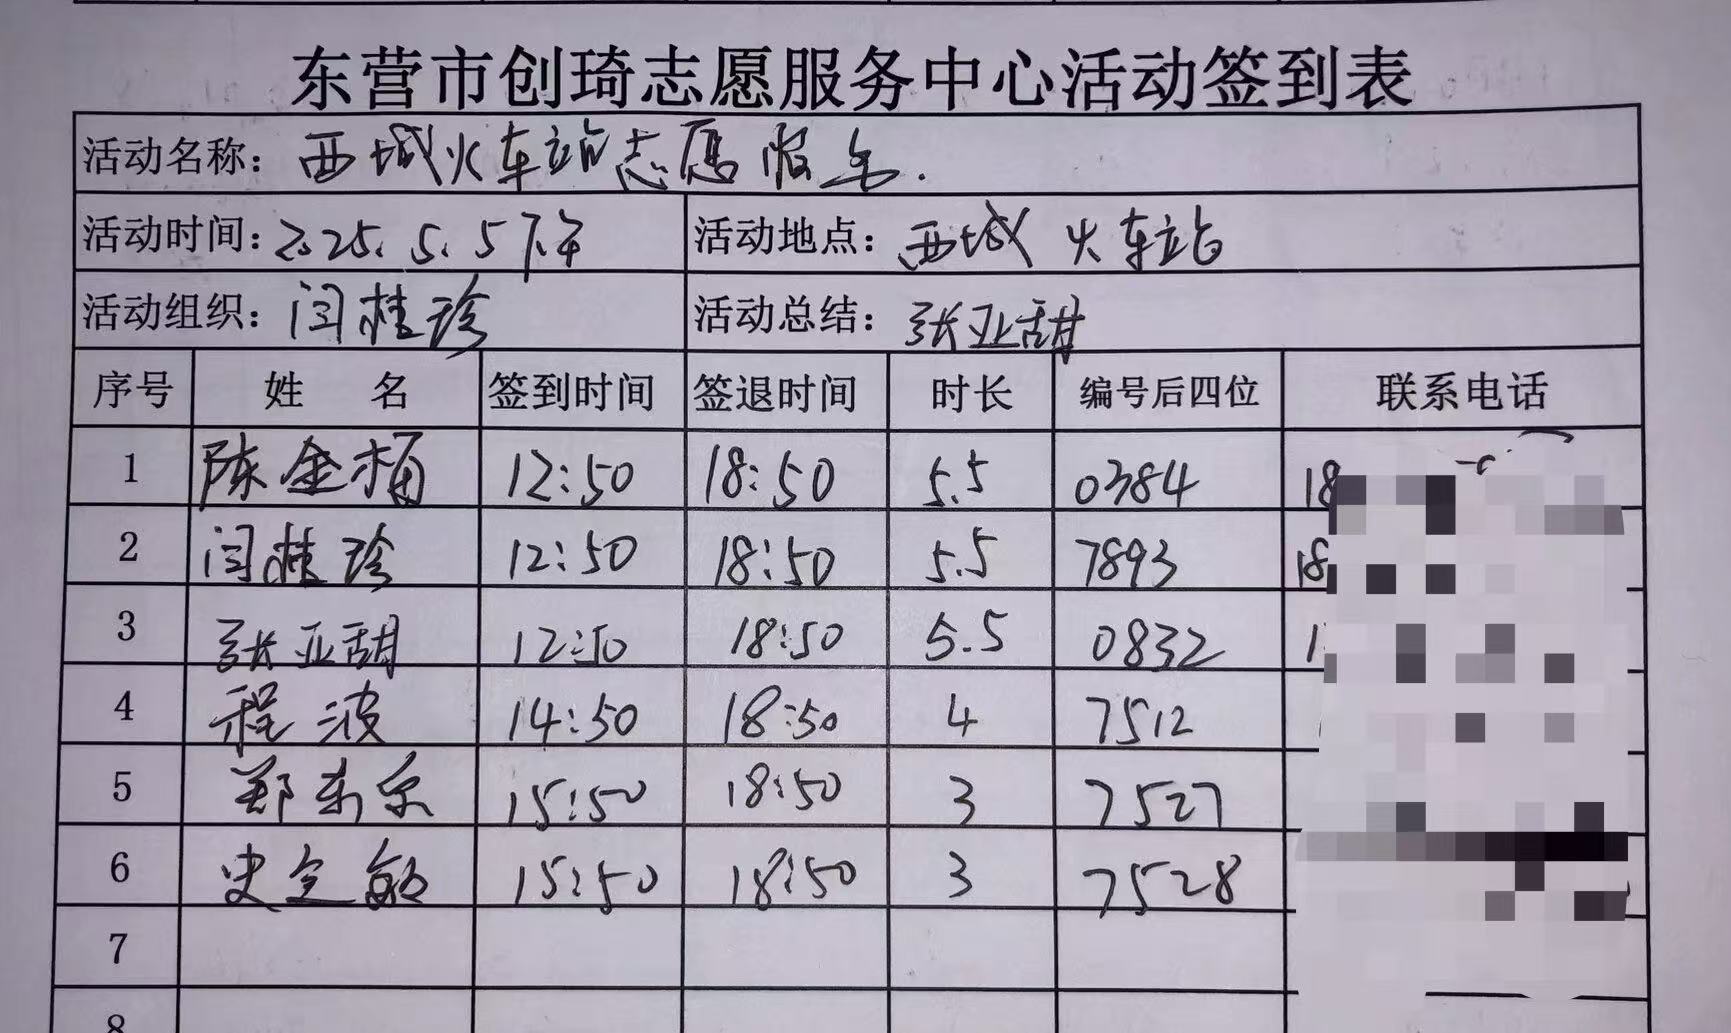 东营市创琦志愿服务中心活动签到表
活动名称：西城火车站志愿服务.
活动时间：2025.5.5下午 活动地点：西城火车站
活动组织：闫桂珍 活动总结：张亚甜
序号 姓 名 签到时间 签退时间 时长 编号后四位 联系电话
1 陈金桶 12:50 18:50 5.5 0384 18
2 闫桂珍 12:50 18:50 5.5 7893 18
3 张亚甜 12:50 18:50 5.5 0832 1
4 程波 14:50 18:50 4 7512
5 郑东京 15:50 18:50 3 7527
6 史全敏 15:50 18:50 3 7528
7
8